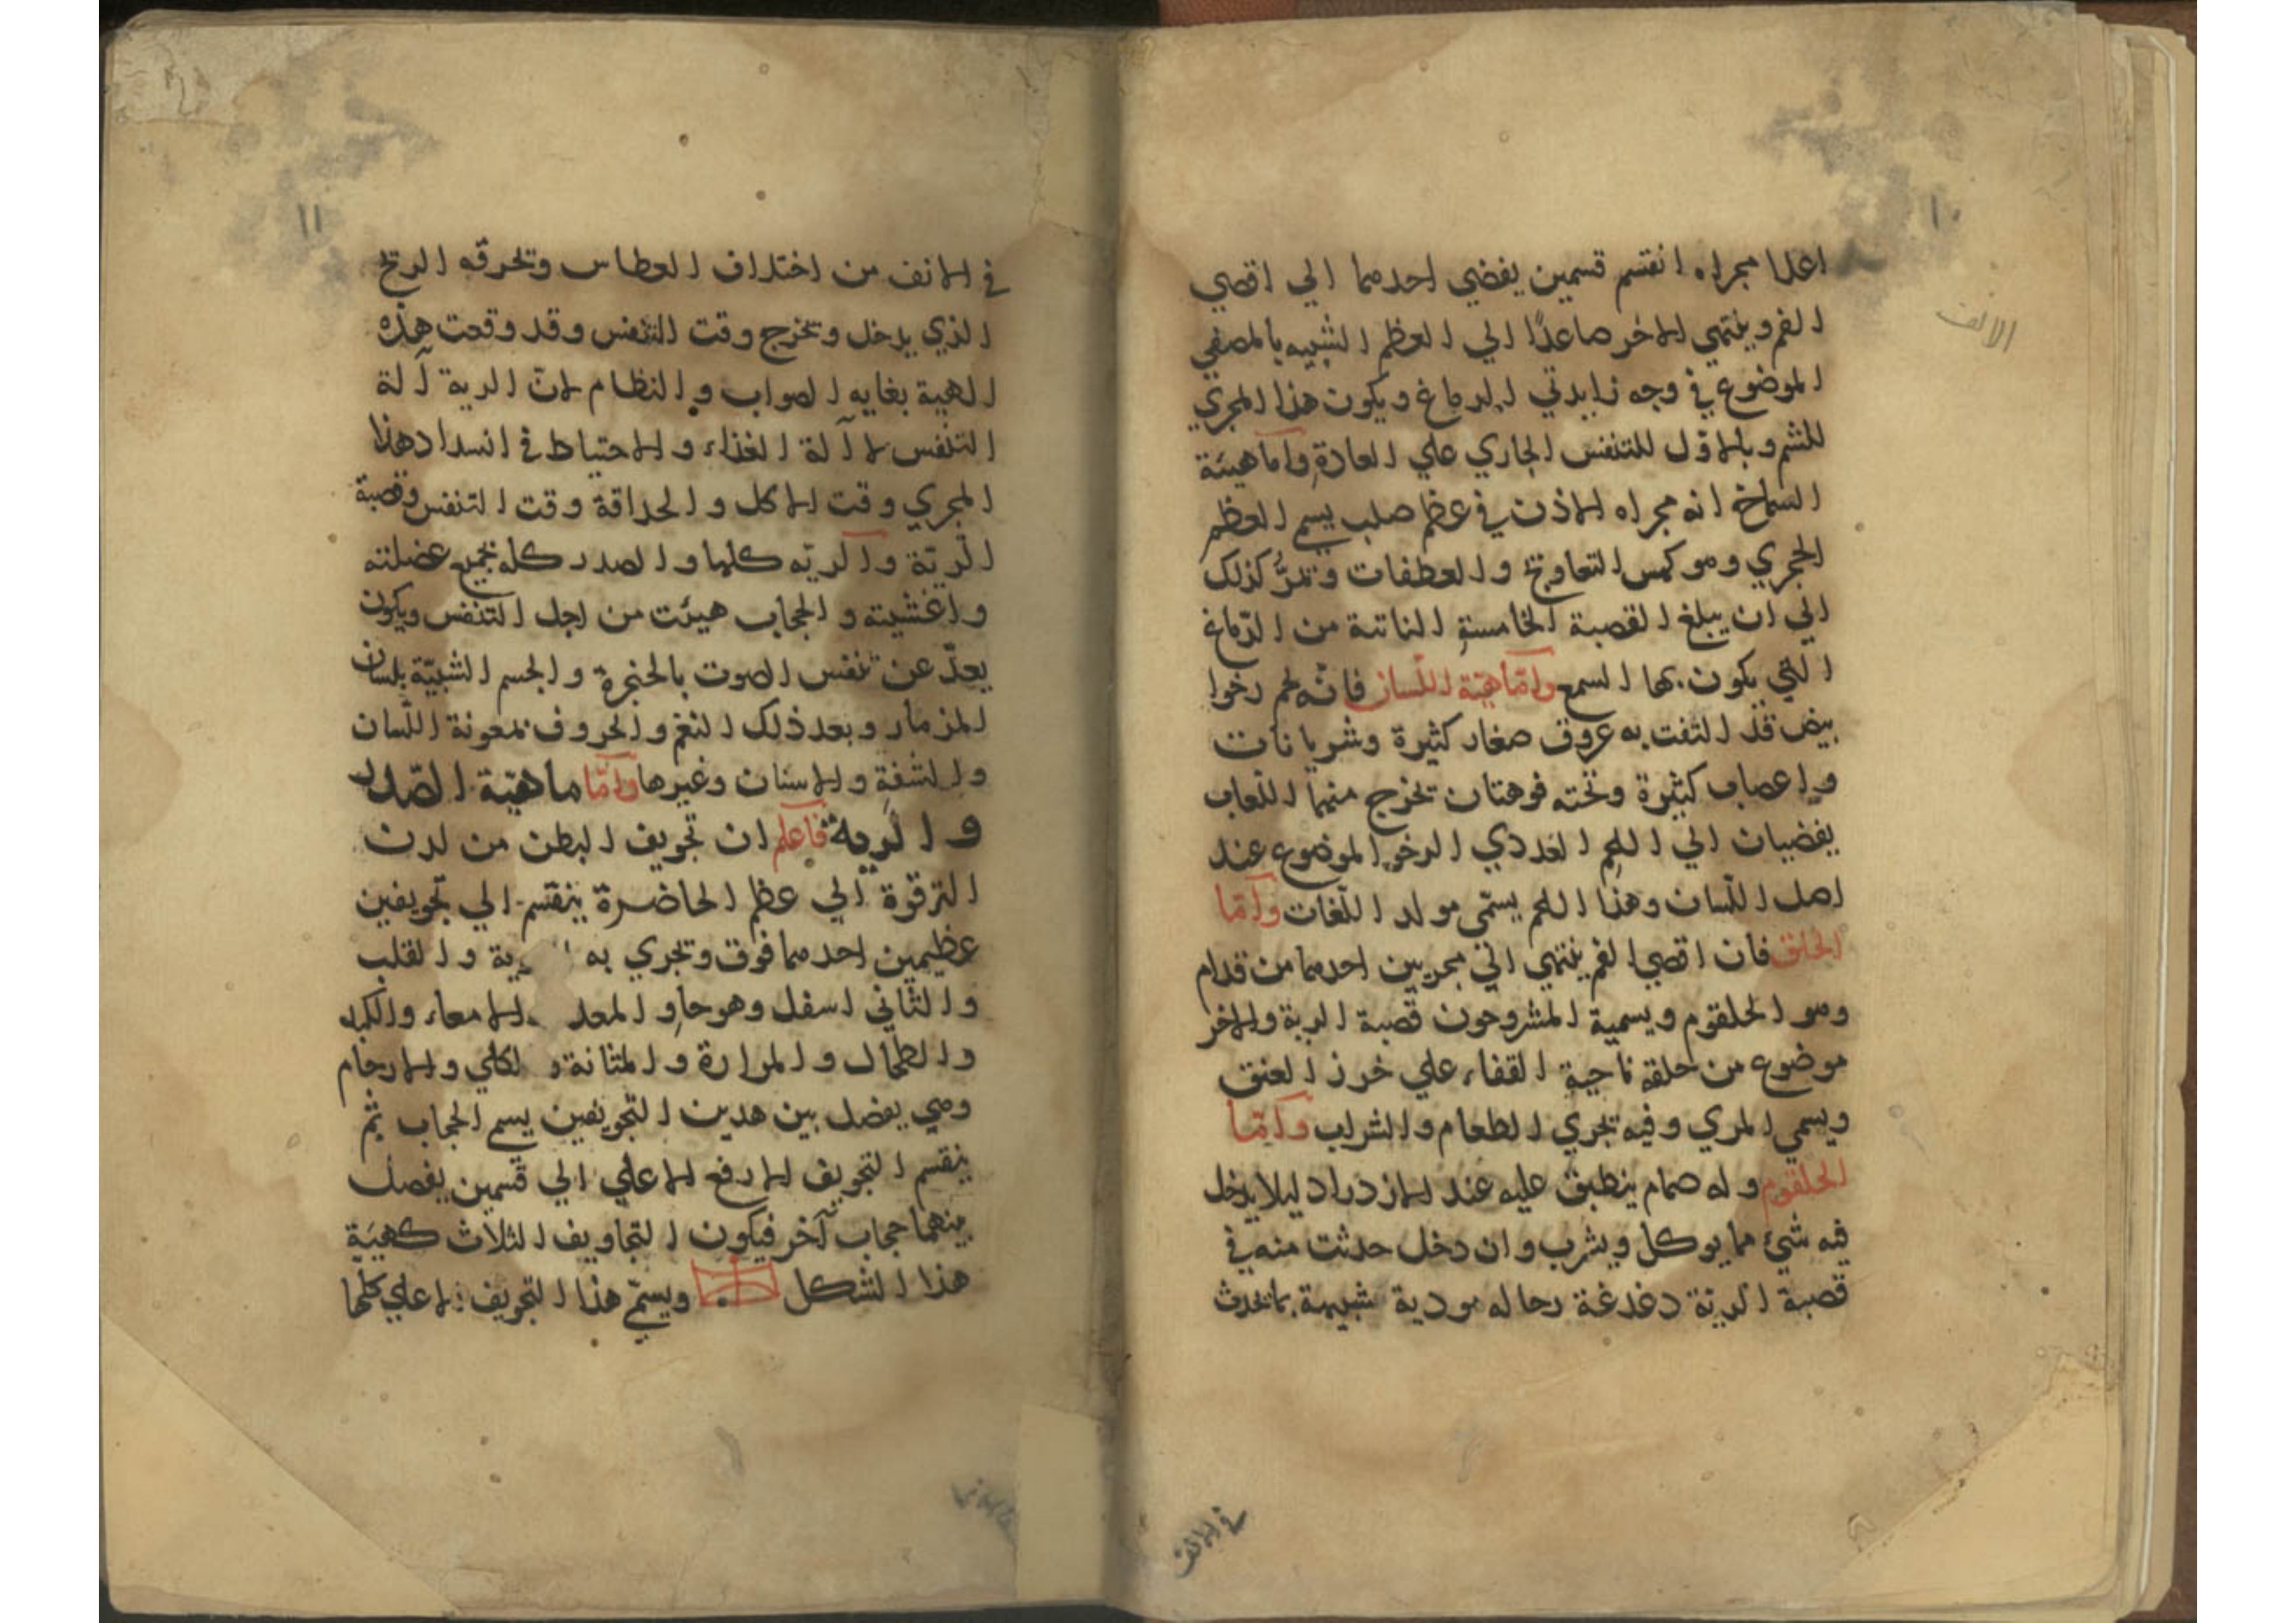 ١٠
الانف
اعلا مجراه انقسم قسمين يفضي احدهما الي اقصي
الفم وينتهي الاخر صاعدًا الي العظم الشبيه بالمصفي
الموضوع في وجه زايدتي الدماغ ويكون هذا المجري
للشم وبالاوّل للتنفس الجاري علي العادة واما هيئة
السماخ انه مجراه الاذن في عظم صلب يسم العظم
الحجري وهو كهس التعاويج والعطفات وتمرُّ كذلك
الي ان يبلغ القصبة الخامسة الناتية من الدّماغ
التي يكون بها السمع وامّا هيّة اللّسان فانّه لحم رخوا
بيض قد التفت به عروق صغار كثيرة وشريانات
واعصاب كثيرة وتحته فوهتان تخرج منهما اللّعاب
يفضيان الي اللحم الغددي الرخو الموضوع عند
اصل اللّسان وهذا اللحم يسمّي مولد اللّغات وامّا
الحلق فان اقصي الفم ينتهي الي مجريين احدهما من قدام
وهو الحلقوم ويسمية المشروحون قصبة الرية والاخر
موضوع من حلقه ناحية القفاء علي خرز العنق
ويسمي المري وفيه تجري الطعام والشراب وامّا
الحلقوم وله صمام ينطبق عليه عند الازدراد ليلا يدخل
فيه شيء مما يوكل ويشرب وان دخل حدثت منه في
قصبة الرية دغدغة رحاله مودية شبيهة بما تحدث
في الانف
١١
في الانف من اختلاف العطاس وتخرقه الريح
الذي يدخل وتخرج وقت التنفس وقد وقعت هذه
الهية بغايه الصواب والنظام لانّ الرية آلة
التنفس لا آلة الغذاء والاحتياط في انسداد هذا
المجري وقت الاكل والحداقة وقت التنفس وقصبة
الرية والريّه كلها والصدر كله بجميع عضلته
واغشيته والحجاب هيئت من اجل التنفس ويكون
يعدّ عن تنفس الصوت بالحنجرة والجسم الشبيّة بلسان
المزمار وبعد ذلك النغم والحروف بمعونة اللّسان
والشفة والاسنان وغيرها وامّا ماهيّة الصّدر
والريه فاعلم ان تجويف البطن من لدن
الترقوة الي عظم الخاضرة ينقسم الي تجويفين
عظيمين احدهما فوق وتجري به رية والقلب
والثاني اسفل وهو حاو المعد الامعاء والكبد
والطحال والمرارة والمثانة و لكلي والارحام
وهي يفضل بين هدين التجويفين يسم الحجاب ثم
ينقسم التجويف الارفع الاعلي الي قسمين يفصل
بينهما حجاب آخر فيكون التجاويف الثلاث كهيئة
هذا الشكل ويسمّ هذا التجويف الاعلي كلّها